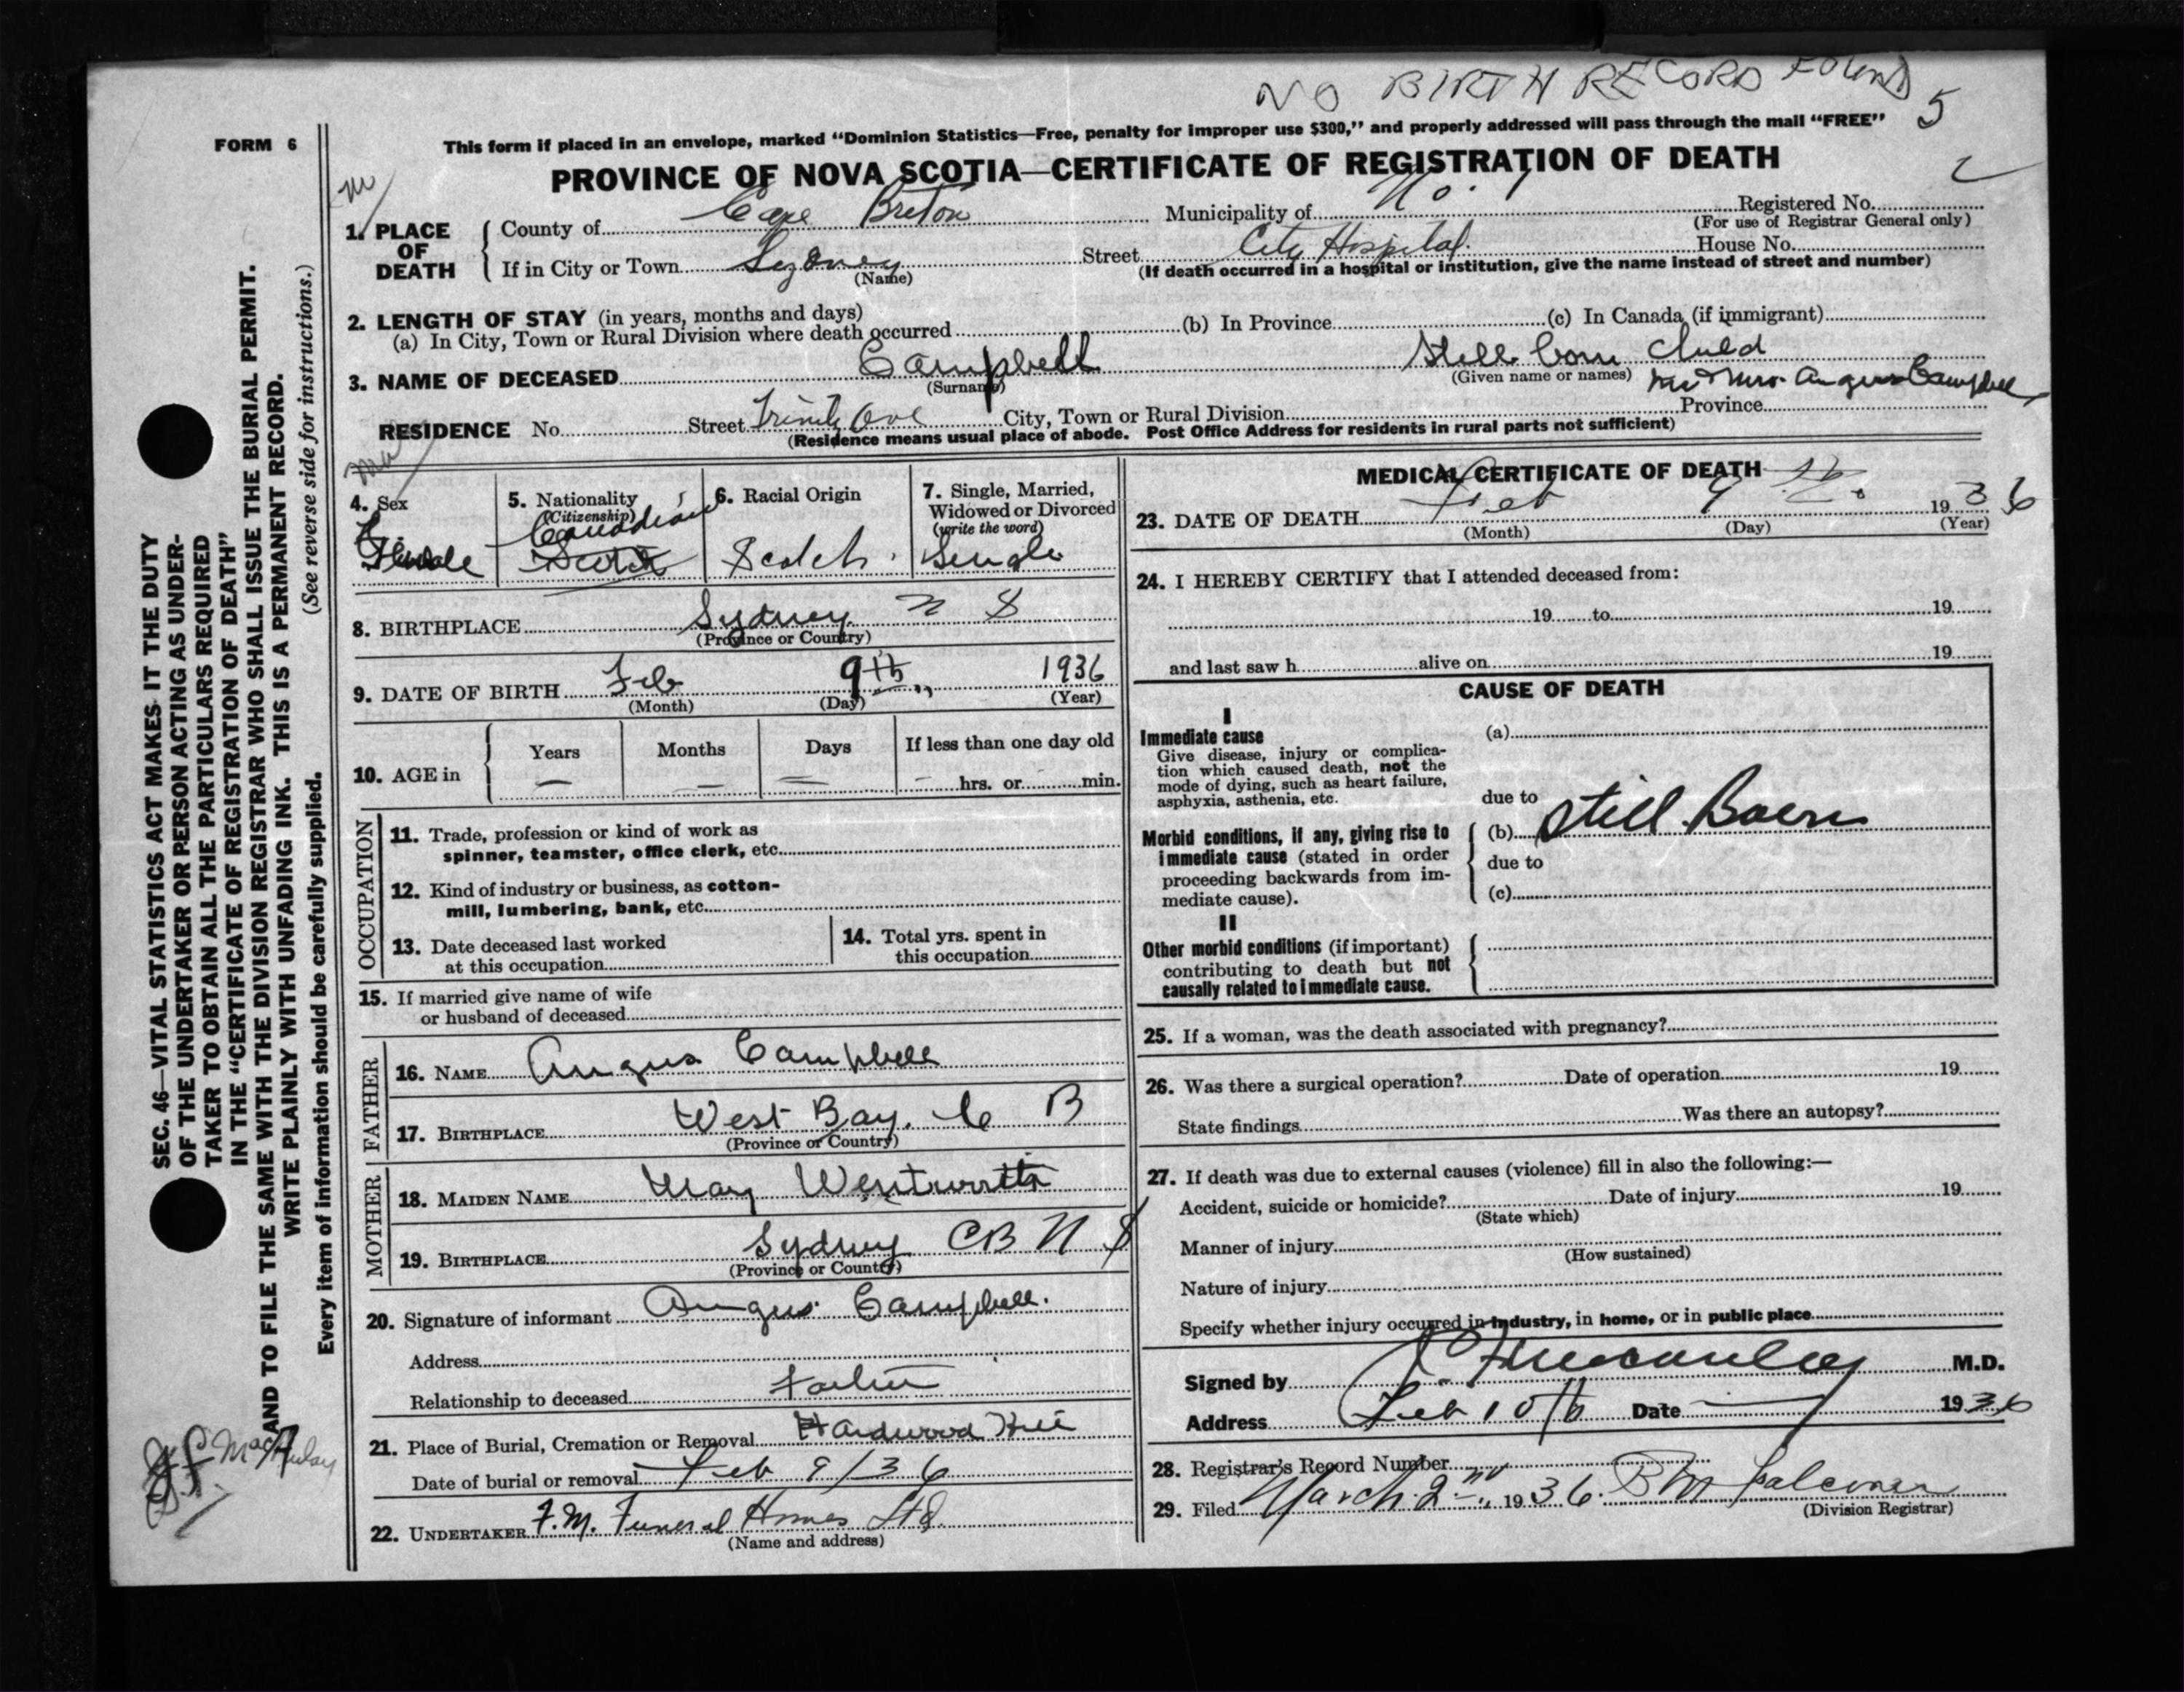 NO BIRTH RECORD FOUND
5
FORM 6
This form if placed in an envelope, marked "Dominion Statistics—Free, penalty for improper use $300," and properly addressed will pass through the mail "FREE"
PROVINCE OF NOVA SCOTIA—CERTIFICATE OF REGISTRATION OF DEATH
1. PLACE OF DEATH
County of Cape Breton Municipality of No. 1 Registered No.
(For use of Registrar General only)
If in City or Town Sydney Street City Hospital. House No.
(Name) (If death occurred in a hospital or institution, give the name instead of street and number)
2. LENGTH OF STAY (in years, months and days)
(a) In City, Town or Rural Division where death occurred (b) In Province (c) In Canada (if immigrant)
3. NAME OF DECEASED Campbell Still born child
(Surname) (Given name or names) Mr & Mrs. Angus Campbell
RESIDENCE No. Street Trinity Ave City, Town or Rural Division Province
(Residence means usual place of abode. Post Office Address for residents in rural parts not sufficient)
4. Sex
Female
5. Nationality
(Citizenship)
Canadian
Scotch
6. Racial Origin
Scotch.
7. Single, Married, Widowed or Divorced
(write the word)
Single
8. BIRTHPLACE Sydney N S
(Province or Country)
9. DATE OF BIRTH Feb 9th 1936
(Month) (Day) (Year)
10. AGE in
Years Months Days If less than one day old
— — — - hrs. or min.
OCCUPATION
11. Trade, profession or kind of work as
spinner, teamster, office clerk, etc.
12. Kind of industry or business, as cotton-
mill, lumbering, bank, etc.
13. Date deceased last worked
at this occupation
14. Total yrs. spent in
this occupation
15. If married give name of wife
or husband of deceased
FATHER
16. NAME Angus Campbell
17. BIRTHPLACE West Bay. C B
(Province or Country)
MOTHER
18. MAIDEN NAME May Wentworth
19. BIRTHPLACE Sydney CB N S
(Province or Country)
20. Signature of informant Angus Campbell.
Address
Relationship to deceased Father
21. Place of Burial, Cremation or Removal Hardwood Hill
Date of burial or removal Feb 9/36
22. UNDERTAKER F.M. Funeral Homes Ltd.
(Name and address)
MEDICAL CERTIFICATE OF DEATH
23. DATE OF DEATH Feb 9 th. 1936
(Month) (Day) (Year)
24. I HEREBY CERTIFY that I attended deceased from:
19 to 19
and last saw h alive on 19
CAUSE OF DEATH
I
Immediate cause
Give disease, injury or complica-
tion which caused death, not the
mode of dying, such as heart failure,
asphyxia, asthenia, etc.
(a)
due to
Morbid conditions, if any, giving rise to
immediate cause (stated in order
proceeding backwards from im-
mediate cause).
(b) Still Born
due to
(c)
II
Other morbid conditions (if important)
contributing to death but not
causally related to immediate cause.
25. If a woman, was the death associated with pregnancy?
26. Was there a surgical operation? Date of operation 19
State findings Was there an autopsy?
27. If death was due to external causes (violence) fill in also the following:—
Accident, suicide or homicide? Date of injury 19
(State which)
Manner of injury
(How sustained)
Nature of injury
Specify whether injury occurred in industry, in home, or in public place
Signed by M.D.
Address Feb 10th Date 1936
28. Registrar's Record Number
29. Filed March 2nd, 1936. B M Falconer
(Division Registrar)
SEC. 46—VITAL STATISTICS ACT MAKES IT THE DUTY
OF THE UNDERTAKER OR PERSON ACTING AS UNDER-
TAKER TO OBTAIN ALL THE PARTICULARS REQUIRED
IN THE "CERTIFICATE OF REGISTRATION OF DEATH"
AND TO FILE THE SAME WITH THE DIVISION REGISTRAR WHO SHALL ISSUE THE BURIAL PERMIT.
WRITE PLAINLY WITH UNFADING INK. THIS IS A PERMANENT RECORD.
(See reverse side for instructions.)
Every item of information should be carefully supplied.